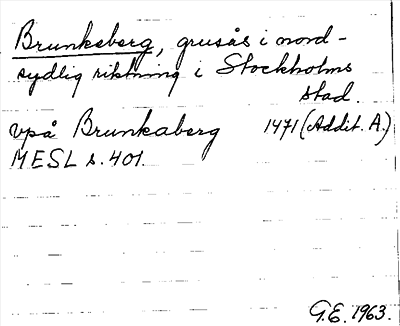 Brunkeberg, grusås i nord-
sydlig riktning i Stockholms
stad.
vpå Brunkaberg 1471 (Addit. A.)
MESL s. 401.
G.E. 1963.